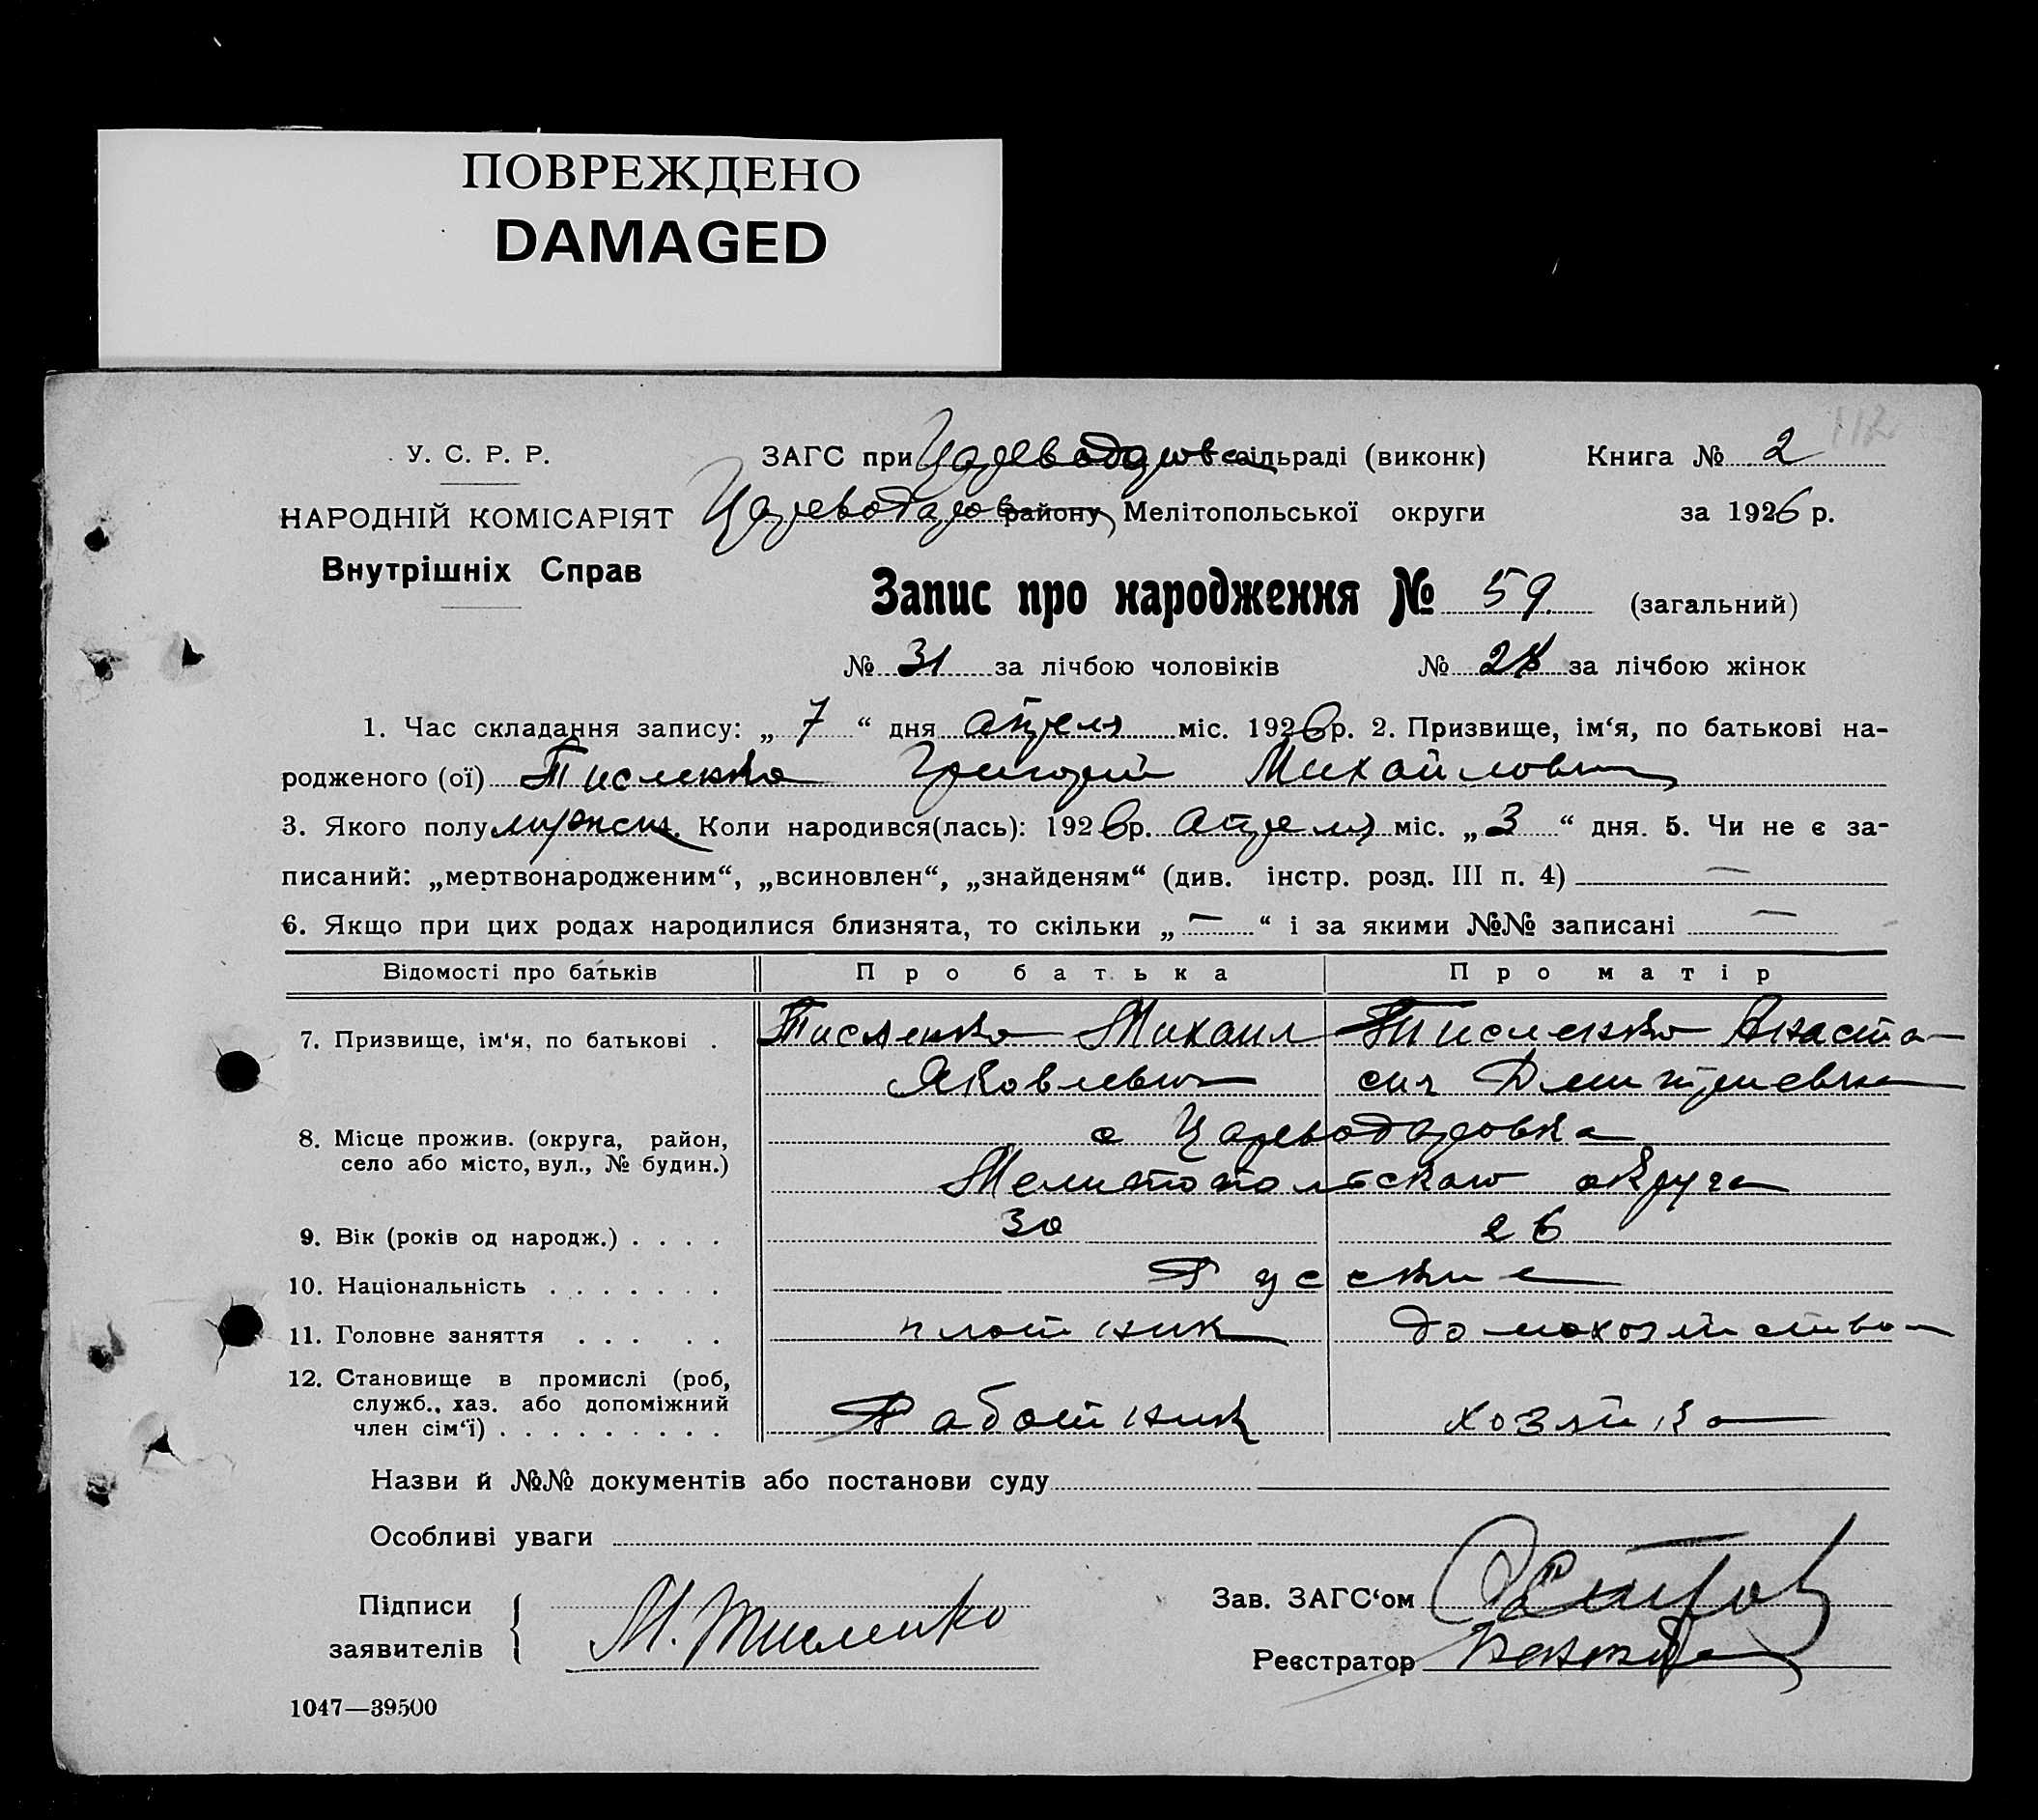 ПОВРЕЖДЕНО
DAMAGED
112
У. С. Р. Р.
НАРОДНІЙ КОМІСАРІЯТ
Внутрішніх Справ
ЗАГС при Цареводаровс сільраді (виконк)
Цареводаров району, Мелітопольської округи
Книга № 2
за 1926 р.
Запис про народження № 59 (загальний)
№ 31 за лічбою чоловіків № 28 за лічбою жінок
1. Час складання запису: „ 7 “ дня апреля міс. 1926 р. 2. Призвище, ім‘я, по батькові на-
родженого (ої) Тисленко Григорий Михайлович
3. Якого полу мужск. Коли народився(лась): 1926 р. апреля міс. „ 3 “ дня. 5. Чи не є за-
писаний: „мертвонародженим“, „всиновлен“, „знайденям“ (див. інстр. розд. III п. 4) —
6. Якщо при цих родах народилися близнята, то скільки „ — “ і за якими №№ записані —
Відомості про батьків Про батька Про матір
7. Призвище, ім‘я, по батькові . Тисленко Михаил Тисленко Анаста-
Яковлевич сия Дмитриевна
8. Місце прожив. (округа, район, с Цареводаровка
село або місто, вул., № будин.) Мелитопольского округа
9. Вік (років од народж.) . . . . 30 26
10. Національність . . . . . . . Русские
11. Головне заняття . . . . . плотник домохозяйство
12. Становище в промислі (роб,
служб., хаз. або допоміжний Работник хозяйка
член сім‘ї) . . . . . . . . .
Назви й №№ документів або постанови суду
Особливі уваги
Підписи
заявителів М. Тисленко
Зав. ЗАГС‘ом
Реєстратор
1047—39500